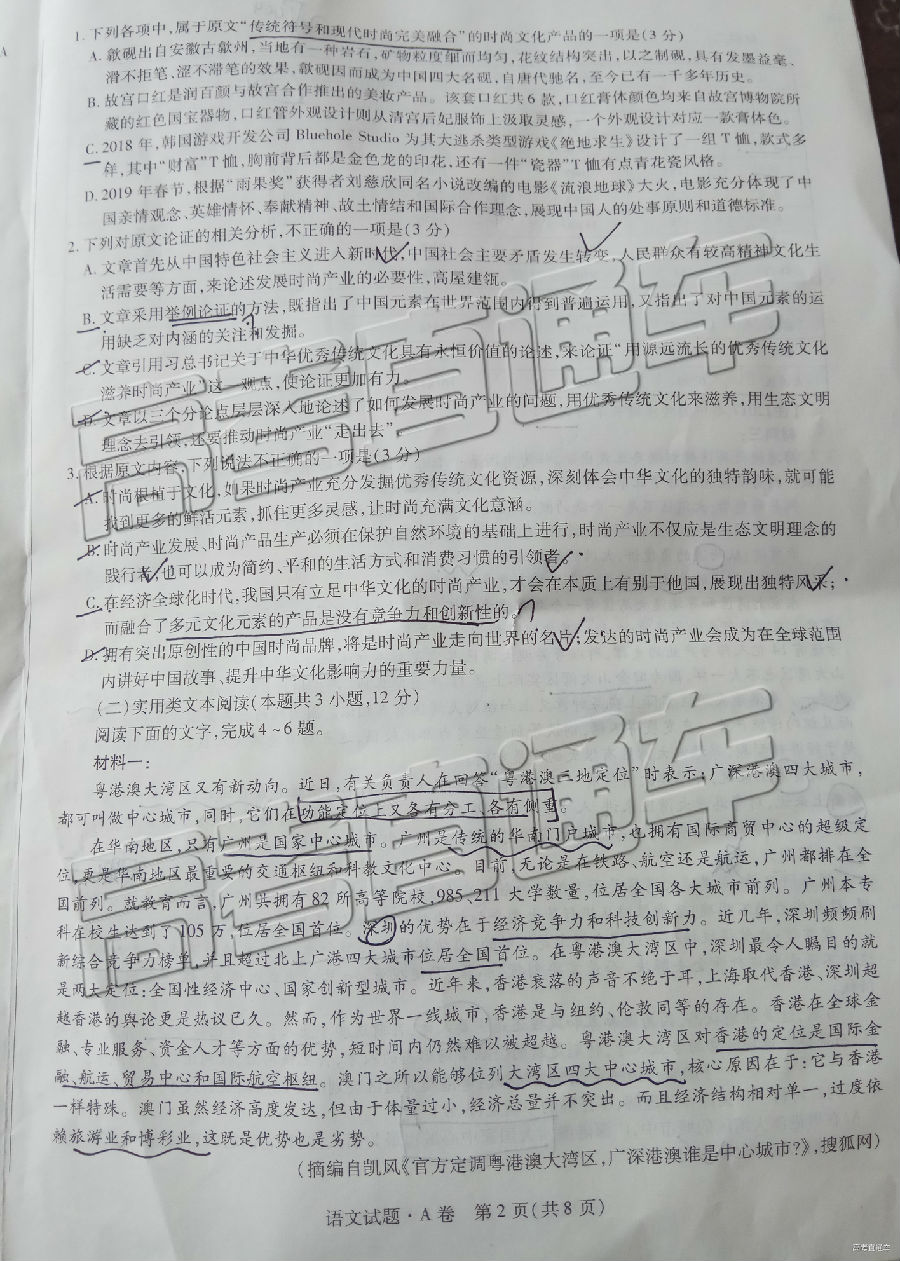 1. 下列各项中,属于原文“传统符号和现代时尚完美融合”的时尚文化产品的一项是(3 分)
A. 歙砚出自安徽古歙州,当地有一种岩石,矿物粒度细而均匀,花纹结构突出,以之制砚,具有发墨益毫、
滑不拒笔、涩不滞笔的效果,歙砚因而成为中国四大名砚,自唐代驰名,至今已有一千多年历史。
B. 故宫口红是润百颜与故宫合作推出的美妆产品。该套口红共 6 款,口红膏体颜色均来自故宫博物院所
藏的红色国宝器物,口红管外观设计则从清宫后妃服饰上汲取灵感,一个外观设计对应一款膏体色。
C. 2018 年,韩国游戏开发公司 Bluehole Studio 为其大逃杀类型游戏《绝地求生》设计了一组 T 恤,款式多
样,其中“财富”T 恤,胸前背后都是金色龙的印花,还有一件“瓷器”T 恤有点青花瓷风格。
D. 2019 年春节,根据“雨果奖”获得者刘慈欣同名小说改编的电影《流浪地球》大火,电影充分体现了中
国亲情观念、英雄情怀、奉献精神、故土情结和国际合作理念,展现中国人的处事原则和道德标准。
2. 下列对原文论证的相关分析,不正确的一项是(3 分)
A. 文章首先从中国特色社会主义进入新时代,中国社会主要矛盾发生转变,人民群众有较高精神文化生
活需要等方面,来论述发展时尚产业的必要性,高屋建瓴。
B. 文章采用举例论证的方法,既指出了中国元素在世界范围内得到普遍运用,又指出了对中国元素的运
用缺乏对内涵的关注和发掘。
C. 文章引用习总书记关于中华优秀传统文化具有永恒价值的论述,来论证“用源远流长的优秀传统文化
滋养时尚产业”这一观点,使论证更加有力。
D. 文章以三个分论点层层深入地论述了如何发展时尚产业的问题,用优秀传统文化来滋养,用生态文明
理念去引领,还要推动时尚产业“走出去”。
3. 根据原文内容,下列说法不正确的一项是(3 分)
A. 时尚根植于文化,如果时尚产业充分发掘优秀传统文化资源,深刻体会中华文化的独特韵味,就可能
找到更多的鲜活元素,抓住更多灵感,让时尚充满文化意涵。
B. 时尚产业发展、时尚产品生产必须在保护自然环境的基础上进行,时尚产业不仅应是生态文明理念的
践行者,也可以成为简约、平和的生活方式和消费习惯的引领者。
C. 在经济全球化时代,我国只有立足中华文化的时尚产业,才会在本质上有别于他国,展现出独特风采;
而融合了多元文化元素的产品是没有竞争力和创新性的。
D. 拥有突出原创性的中国时尚品牌,将是时尚产业走向世界的名片;发达的时尚产业会成为在全球范围
内讲好中国故事、提升中华文化影响力的重要力量。
(二)实用类文本阅读(本题共 3 小题,12 分)
阅读下面的文字,完成 4~6 题。
材料一:
粤港澳大湾区又有新动向。近日,有关负责人在回答“粤港澳三地定位”时表示:广深港澳四大城市,
都可叫做中心城市,同时,它们在功能定位上又各有分工、各有侧重。
在华南地区,只有广州是国家中心城市。广州是传统的华南门户城市,也拥有国际商贸中心的超级定
位,更是华南地区最重要的交通枢纽和科教文化中心。目前,无论是在铁路、航空还是航运,广州都排在全
国前列。就教育而言,广州共拥有 82 所高等院校,985、211 大学数量,位居全国各大城市前列。广州本专
科在校生达到了 105 万,位居全国首位。深圳的优势在于经济竞争力和科技创新力。近几年,深圳频频刷
新综合竞争力榜单,并且超过北上广港四大城市位居全国首位。在粤港澳大湾区中,深圳最令人瞩目的就
是两大定位:全国性经济中心、国家创新型城市。近年来,香港衰落的声音不绝于耳,上海取代香港、深圳超
越香港的舆论更是热议已久。然而,作为世界一线城市,香港是与纽约、伦敦同等的存在。香港在全球金
融、专业服务、资金人才等方面的优势,短时间内仍然难以被超越。粤港澳大湾区对香港的定位是国际金
融、航运、贸易中心和国际航空枢纽。澳门之所以能够位列大湾区四大中心城市,核心原因在于:它与香港
一样特殊。澳门虽然经济高度发达,但由于体量过小,经济总量并不突出。而且经济结构相对单一,过度依
赖旅游业和博彩业,这既是优势也是劣势。
(摘编自凯风《官方定调粤港澳大湾区,广深港澳谁是中心城市?》,搜狐网)
语文试题·A 卷 第 2 页(共 8 页)
高考直通车
高考直通车
高考直通车